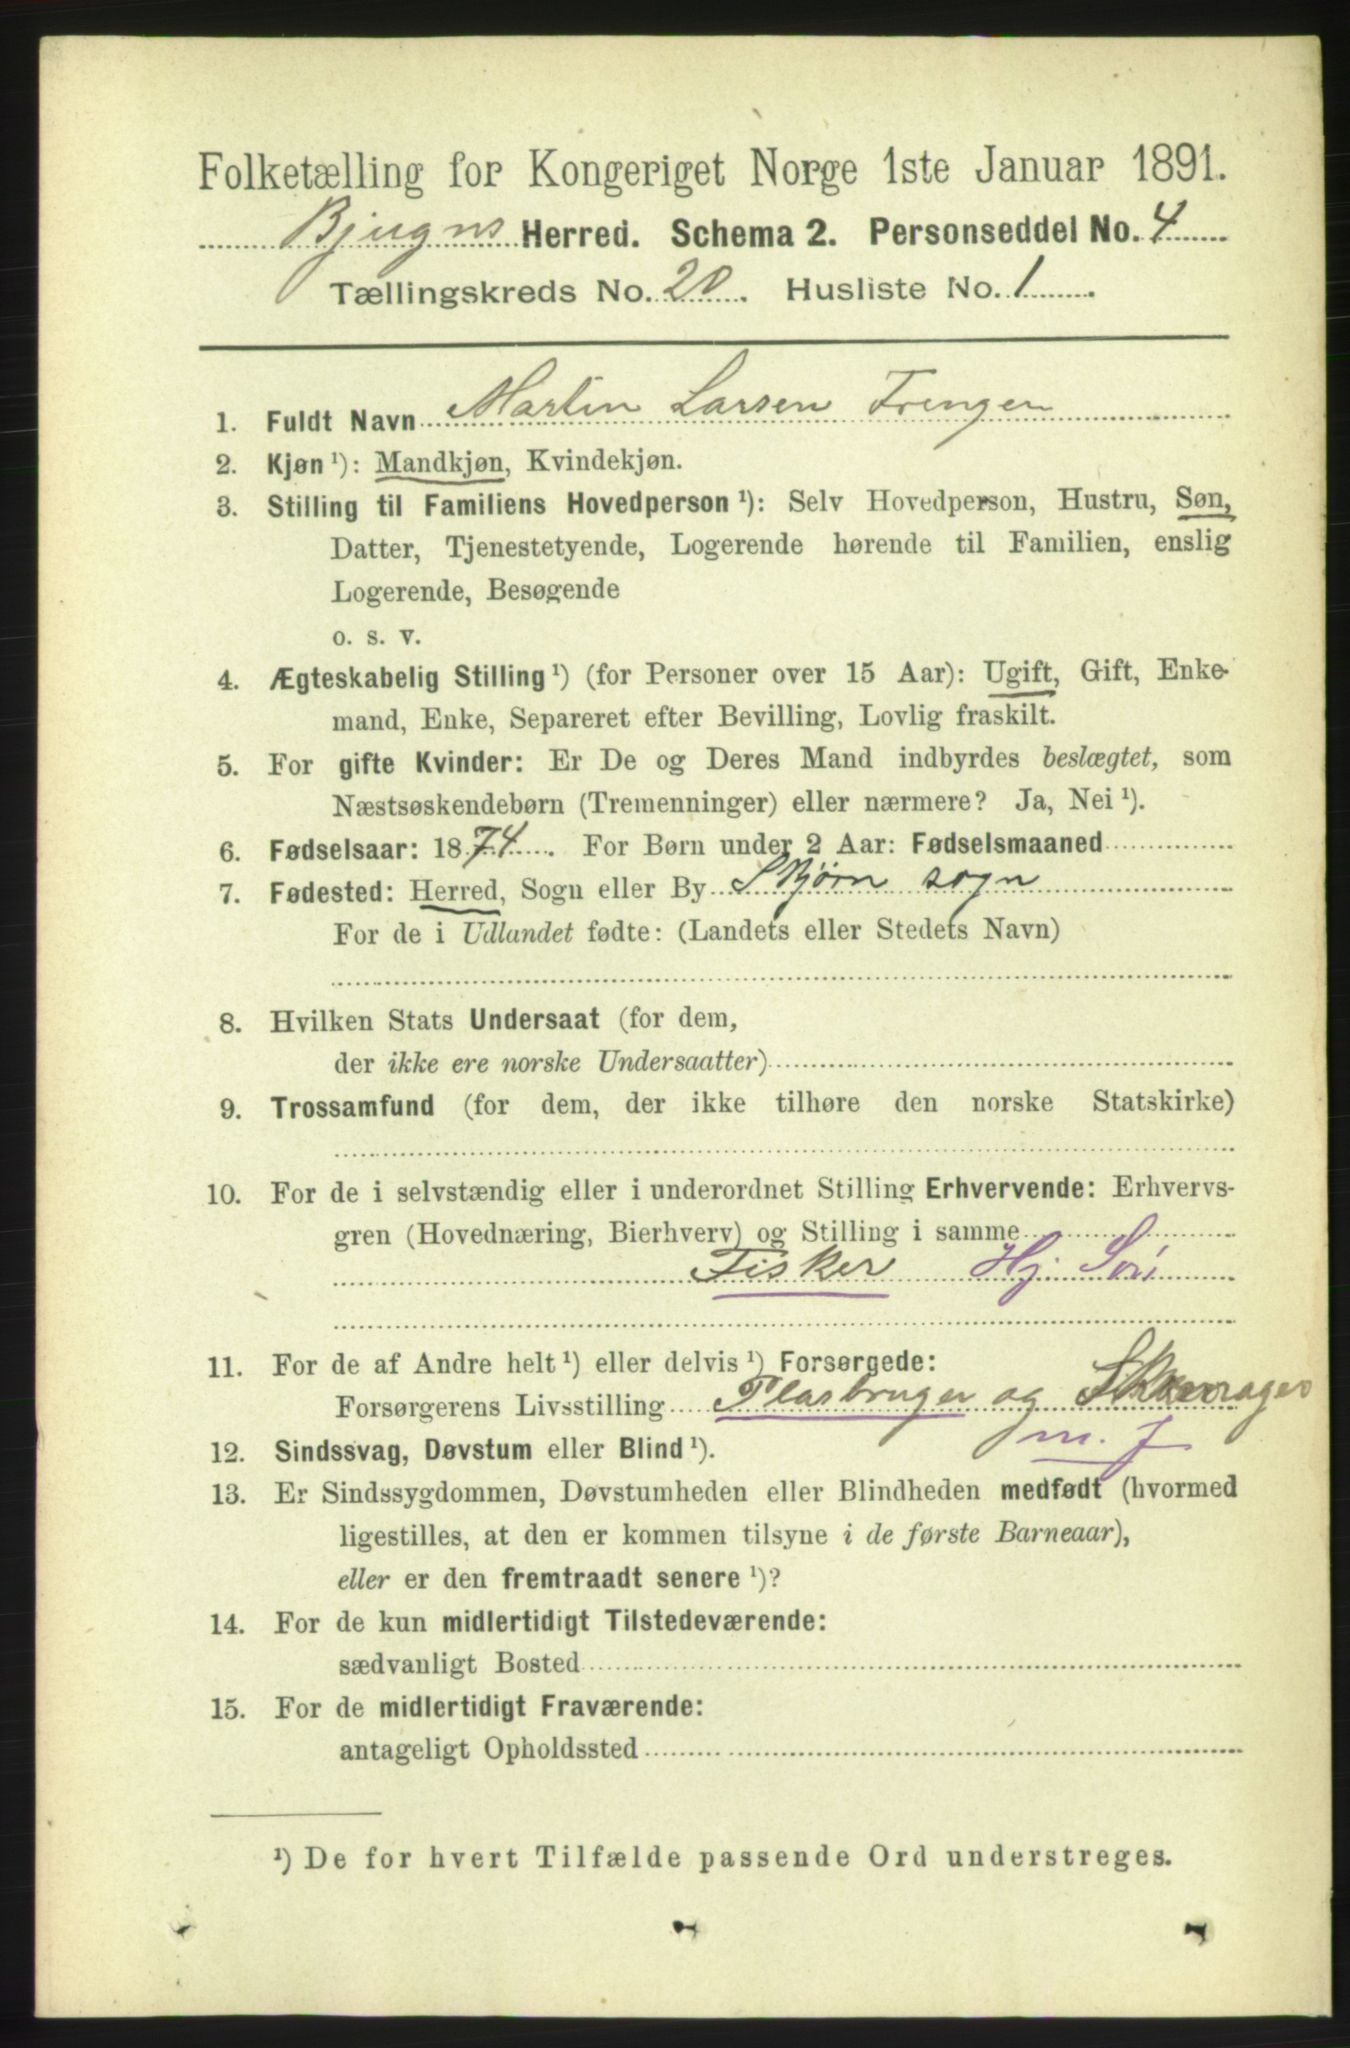 Folketælling for Kongeriget Norge 1ste Januar 1891.
Bjugns Herred. Schema 2. Personseddel No. 4
Tællingskreds No. 20. Husliste No. 1.
1. Fuldt Navn Martin Larsen
2. Kjøn ¹): Mandkjøn, Kvindekjøn.
3. Stilling til Familiens Hovedperson ¹): Selv Hovedperson, Hustru, Søn,
Datter, Tjenestetyende, Logerende hørende til Familien, enslig
Logerende, Besøgende
o. s. v.
4. Ægteskabelig Stilling ¹) (for Personer over 15 Aar): Ugift, Gift, Enke-
mand, Enke, Separeret efter Bevilling, Lovlig fraskilt.
5. For gifte Kvinder: Er De og Deres Mand indbyrdes beslægtet, som
Næstsøskendebørn (Tremenninger) eller nærmere? Ja, Nei ¹).
6. Fødselsaar: 1874. For Børn under 2 Aar: Fødselsmaaned
7. Fødested: Herred, Sogn eller By Skjørn sogn
For de i Udlandet fødte: (Landets eller Stedets Navn)
8. Hvilken Stats Undersaat (for dem,
der ikke ere norske Undersaatter)
9. Trossamfund (for dem, der ikke tilhøre den norske Statskirke)
10. For de i selvstændig eller i underordnet Stilling Erhvervende: Erhvervs-
gren (Hovednæring, Bierhverv) og Stilling i samme
Fisker Hj. Søn
11. For de af Andre helt ¹) eller delvis ¹) Forsørgede:
Forsørgerens Livsstilling Plasbruger og
m. J
12. Sindssvag, Døvstum eller Blind ¹).
13. Er Sindssygdommen, Døvstumheden eller Blindheden medfødt (hvormed
ligestilles, at den er kommen tilsyne i de første Barneaar),
eller er den fremtraadt senere ¹)?
14. For de kun midlertidigt Tilstedeværende:
sædvanligt Bosted
15. For de midlertidigt Fraværende:
antageligt Opholdssted
¹) De for hvert Tilfælde passende Ord understreges.